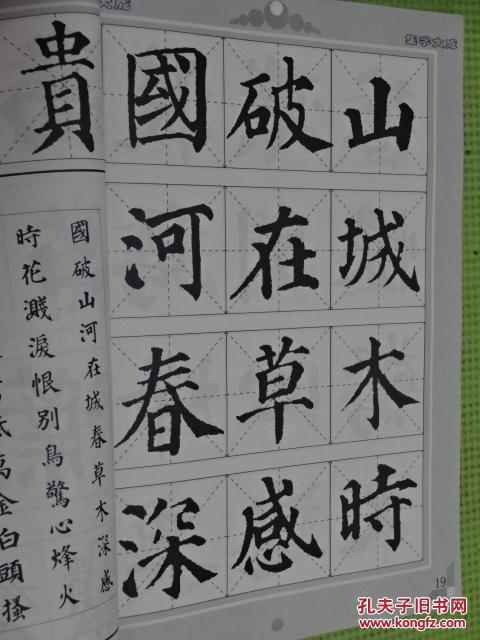 大成
集字大成
貴
國破山
河在城
春草木
深感時
國破山河在城春草木深感
時花濺淚恨別鳥驚心烽火
萬金白頭搔
19
孔夫子旧书网
www.kongfz.com